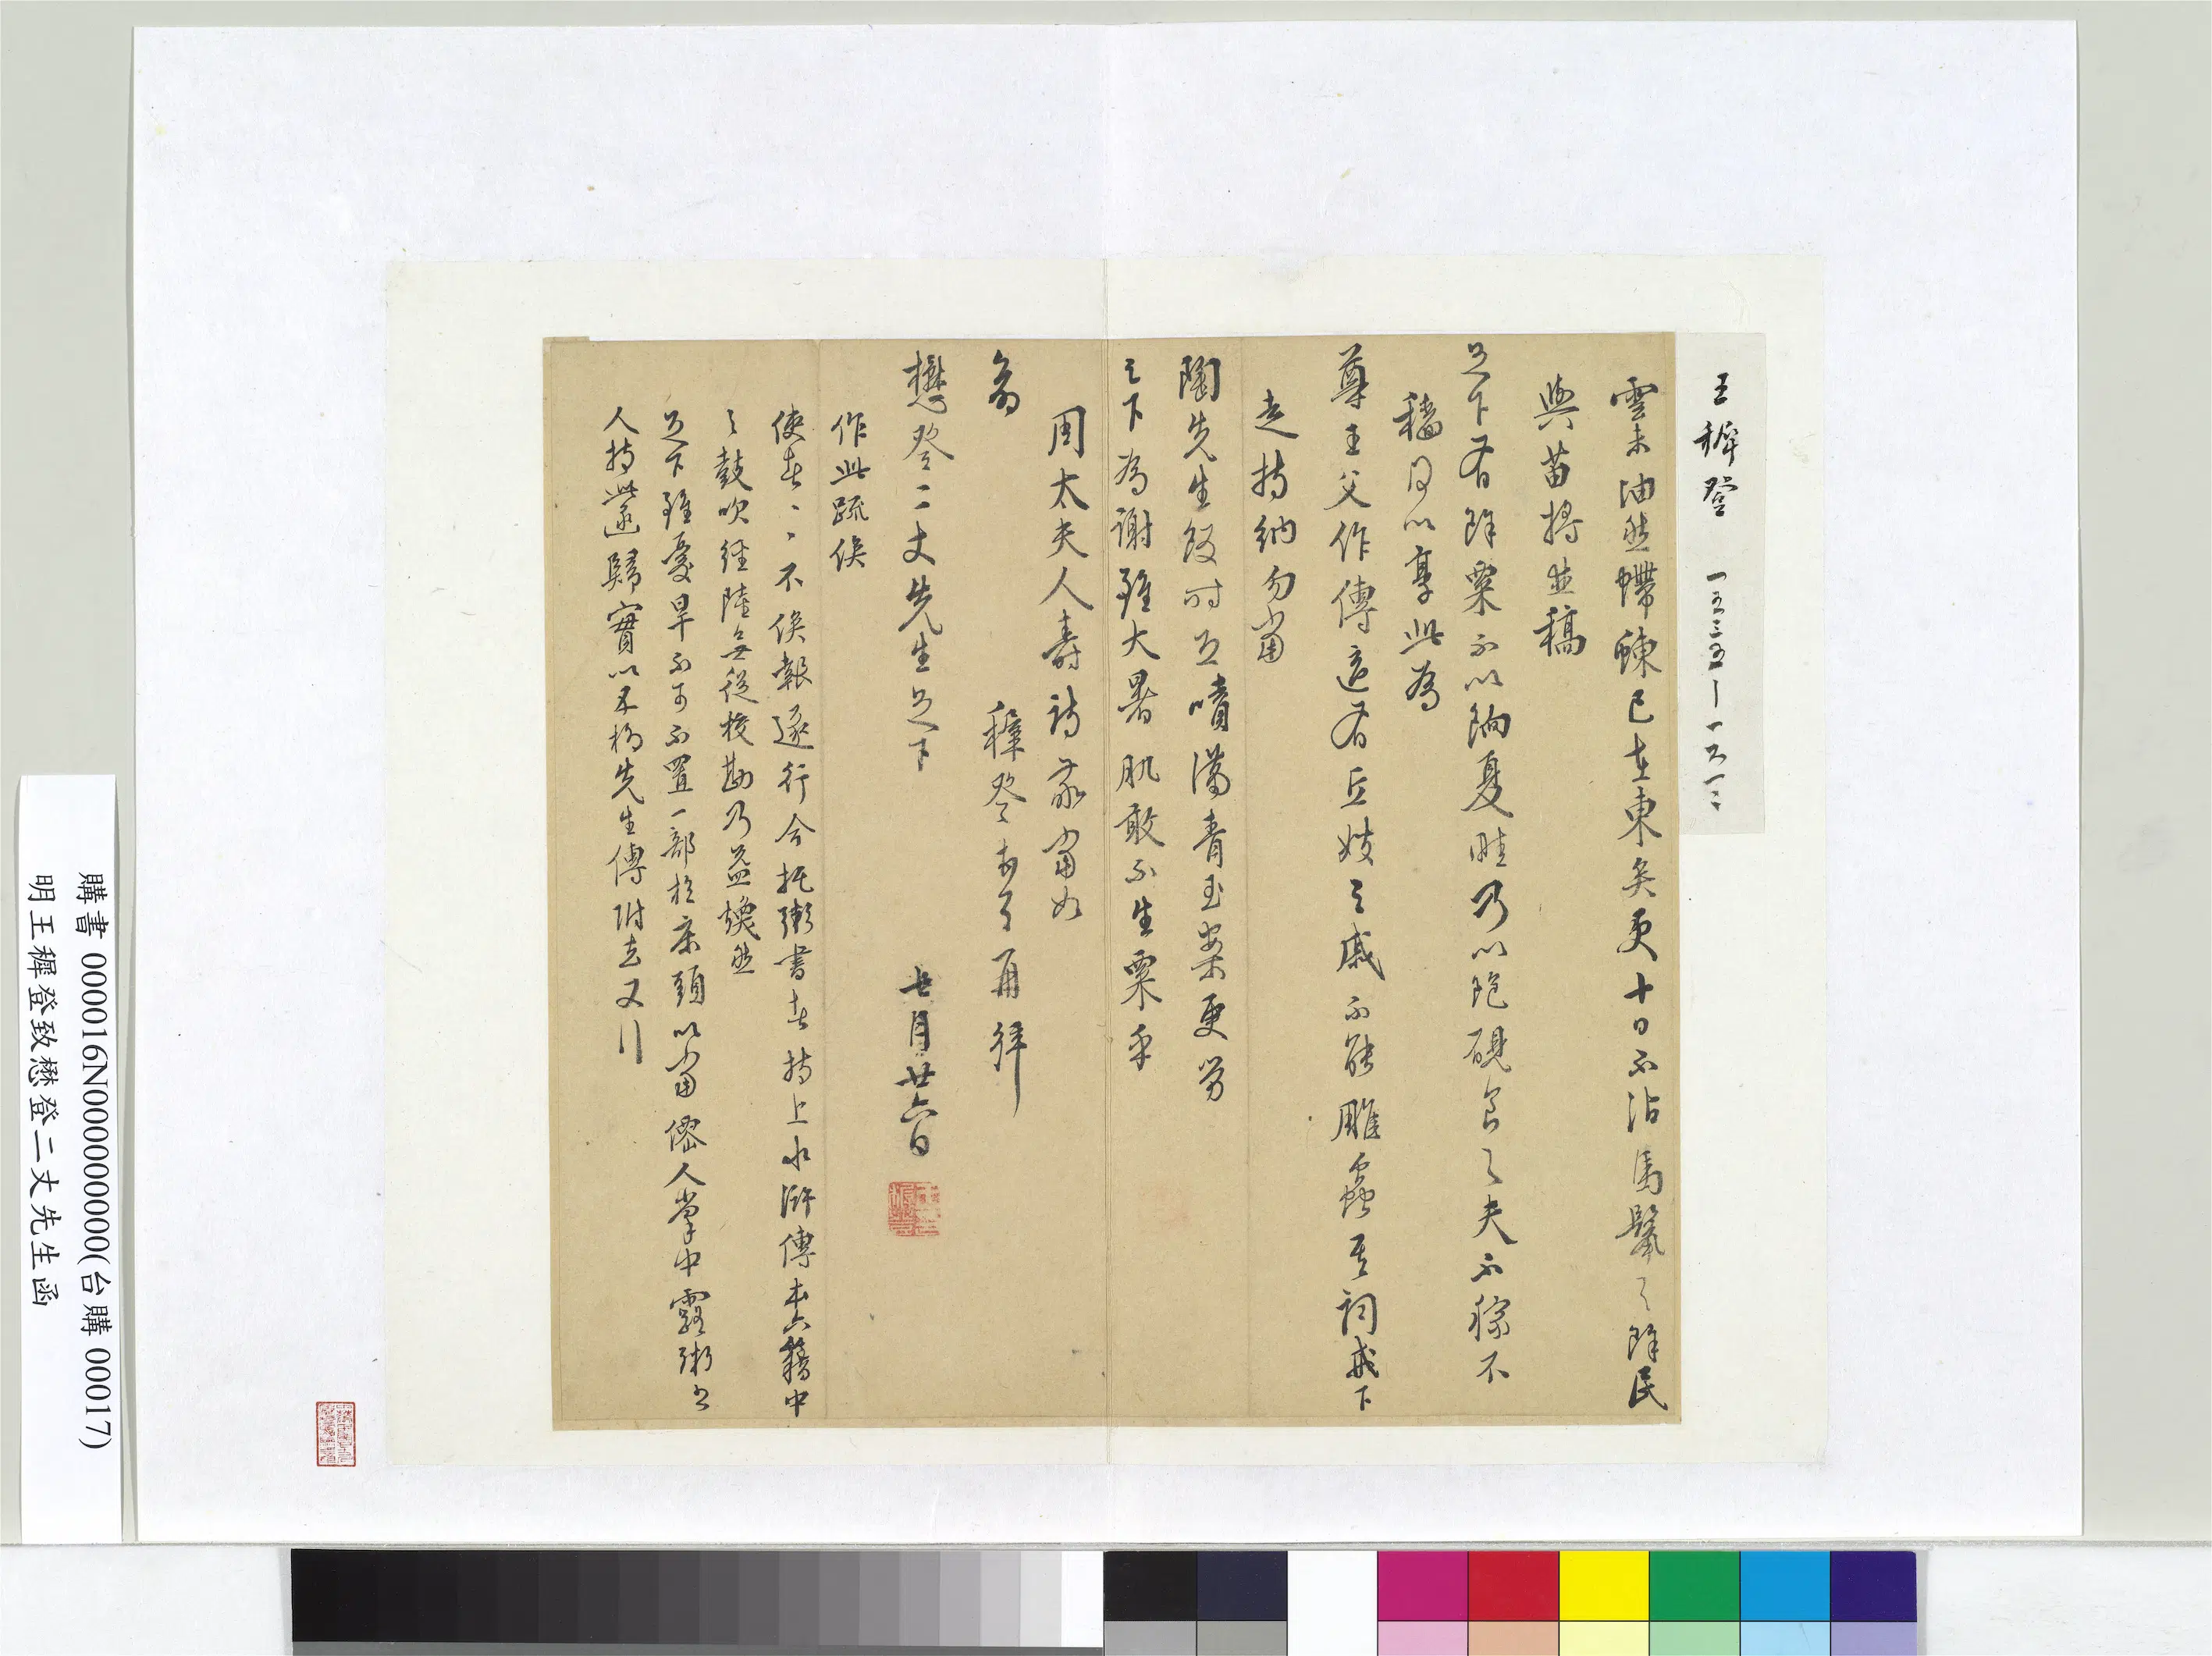 王穉登　一五三五－一六一二
雲未油然蝃蝀已在東矣更十日不沾馬鬣之餘民
與苗將並稿
足下有餘粟不以餉夏畦乃以飽硯食之夫不稼不
穡何以享此為
尊王父作傳適有丘嫂之戚不能雕蟲其詞成下
走持納勿嵩
陶先生飯時足噴滿青玉案更勞
足下為謝雖大暑肌敢不生粟乎
周太夫人壽詩承嵩如
翁
穉登頓首再拜
懋登二丈先生足下
七月廿六日
作此疏俟
使者不俟報遂行今托鬻書者持上水滸傳本六籍中
之鼓吹經陸無從校勘乃益煥然
足下雖憂旱不可不置一部於床頭以當僊人掌中露鬻書
人持遞歸實以不朽先生傳附去又行
購書 000016N000000000(台購 00017)
明王穉登致懋登二丈先生函